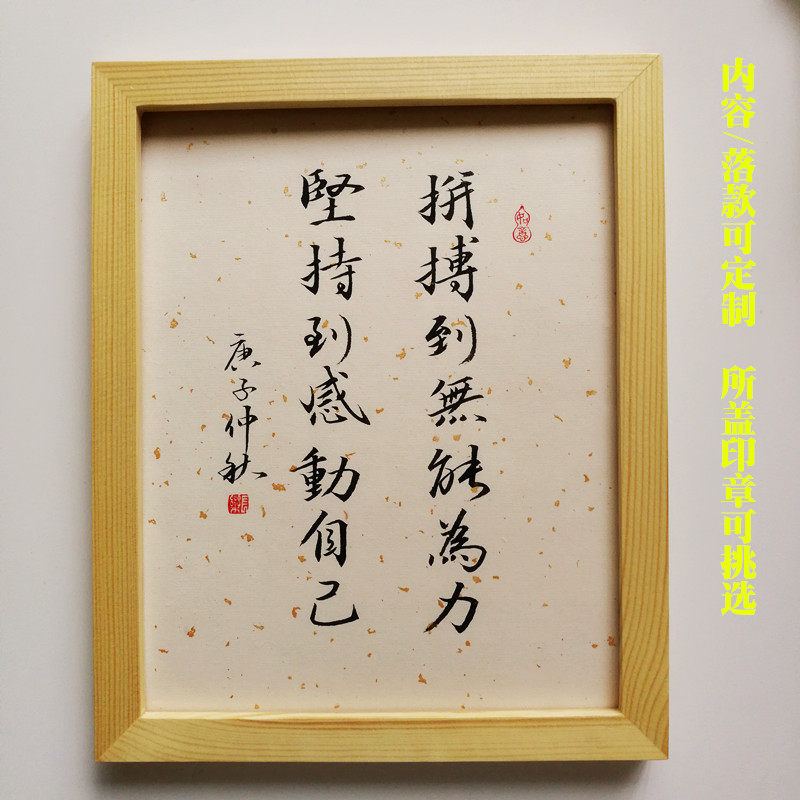 拼搏到無能為力
堅持到感動自己
庚子仲秋
内容/落款可定制 所盖印章可挑选